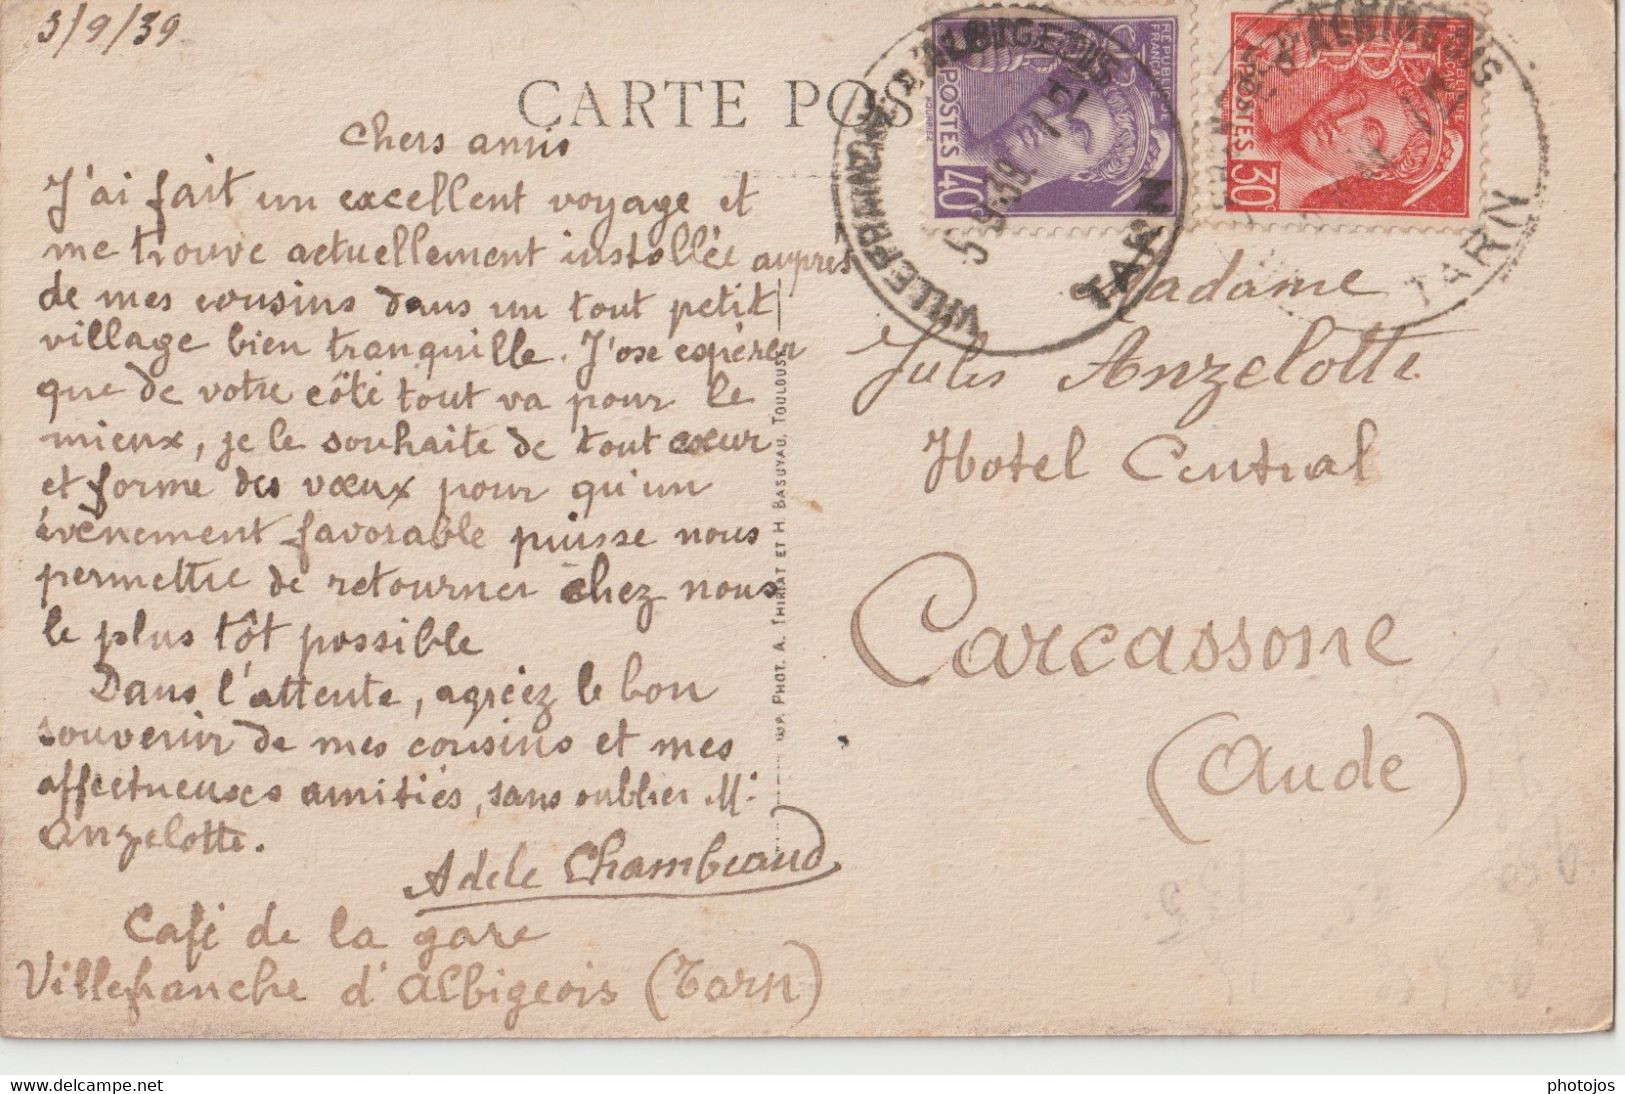 3/9/39
CARTE POS
Chers amis
J'ai fait un excellent voyage et
me trouve actuellement installée auprès
de mes cousins dans un tout petit
village bien tranquille. J'ose espérer
que de votre côté tout va pour le
mieux, je le souhaite de tout cœur
et forme des vœux pour qu'un
évènement favorable puisse nous
permettre de retourner chez nous
le plus tôt possible
Dans l'attente, agréez le bon
souvenir de mes cousins et mes
affectueuses amitiés, sans oublier Mr
Anzelotte.
Adele Chambeaud
Café de la gare
Villefranche d'Albigeois (Tarn)
PHOT. A. THIRIAT ET H. BASUYAU, TOULOUSE
RÉPUBLIQUE
FRANCAISE
POSTES 40c
VILLEFRANCHE D'ALBIGEOIS
12
5-9-39
TARN
POSTES 30c
D'ALBIGEOIS
TARN
Madame
Jules Anzelotte
Hotel Central
Carcassone
(Aude)
delcampe.net
photojos